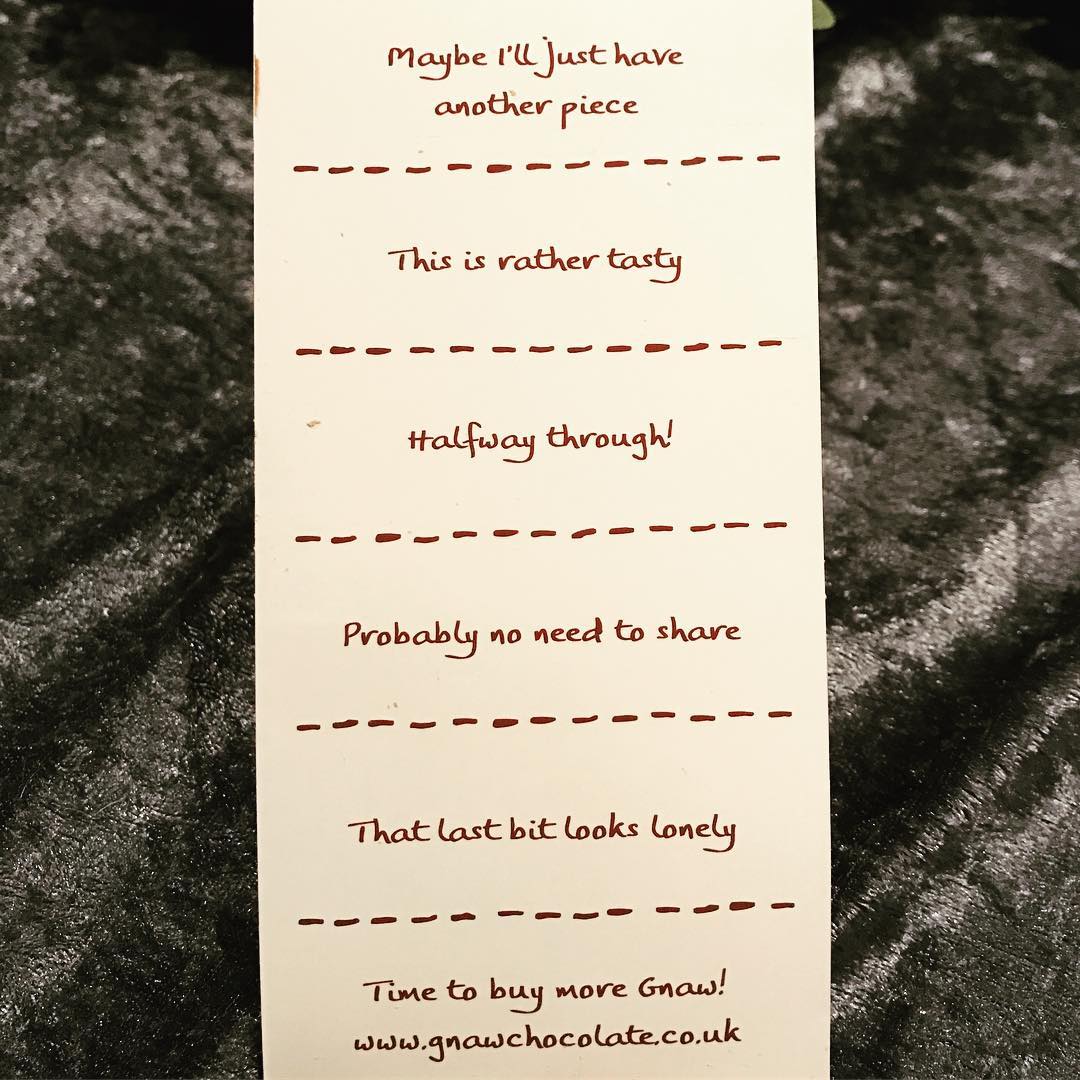 Maybe I'll just have
another piece
This is rather tasty
Halfway through!
Probably no need to share
That last bit looks lonely
Time to buy more Gnaw!
www.gnawchocolate.co.uk